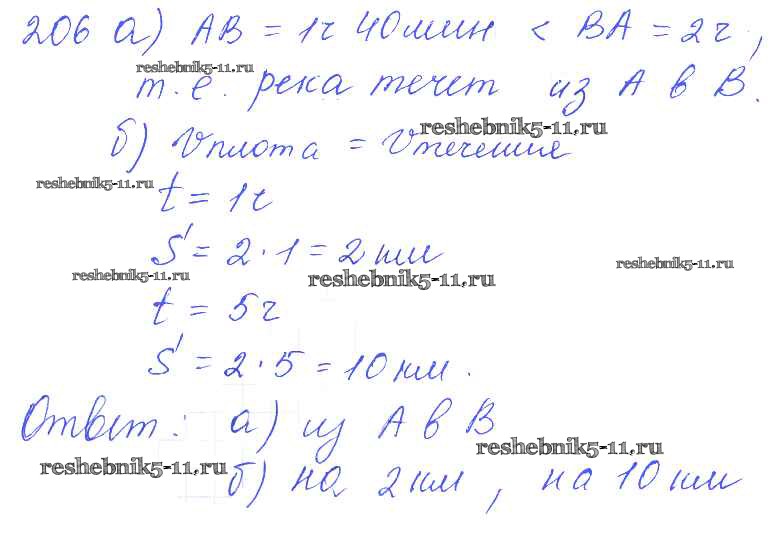 206 а) AB = 1ч 40мин < BA = 2ч,
reshebnik5-11.ru
т.е. река течет из A в B.
reshebnik5-11.ru
б) Vплота = Vтечения
reshebnik5-11.ru
t = 1ч
S = 2·1 = 2 км
reshebnik5-11.ru
reshebnik5-11.ru
reshebnik5-11.ru
t = 5ч
S = 2·5 = 10 км.
Ответ: а) из A в B
reshebnik5-11.ru
reshebnik5-11.ru
б) на 2 км, на 10 км